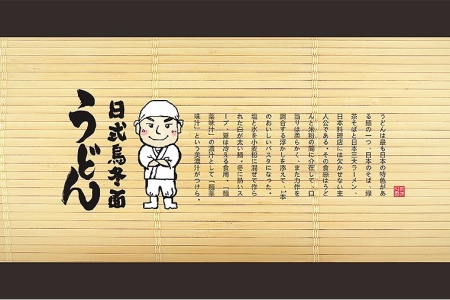 うどんは最も日本の特色があ
る麺の一つ、日本のそば、緑
茶そばと日本三大ラーメン、
日本料理店には欠かせない主
人公である。その食感はうど
んと米粉の間に介在して、口
当りは柔らかく、また力作を
調合する浮かしを添えて、一本
のおいしいパスタになった。
塩と水を小麦粉に混ぜて作ら
れた白が太い麺。冬に熱いス
ープ、夏は冷える食用、「麺
薬味汁」の濃汁として「麺薬
味汁」という濃汁がつけら。
日式烏冬面
うどん